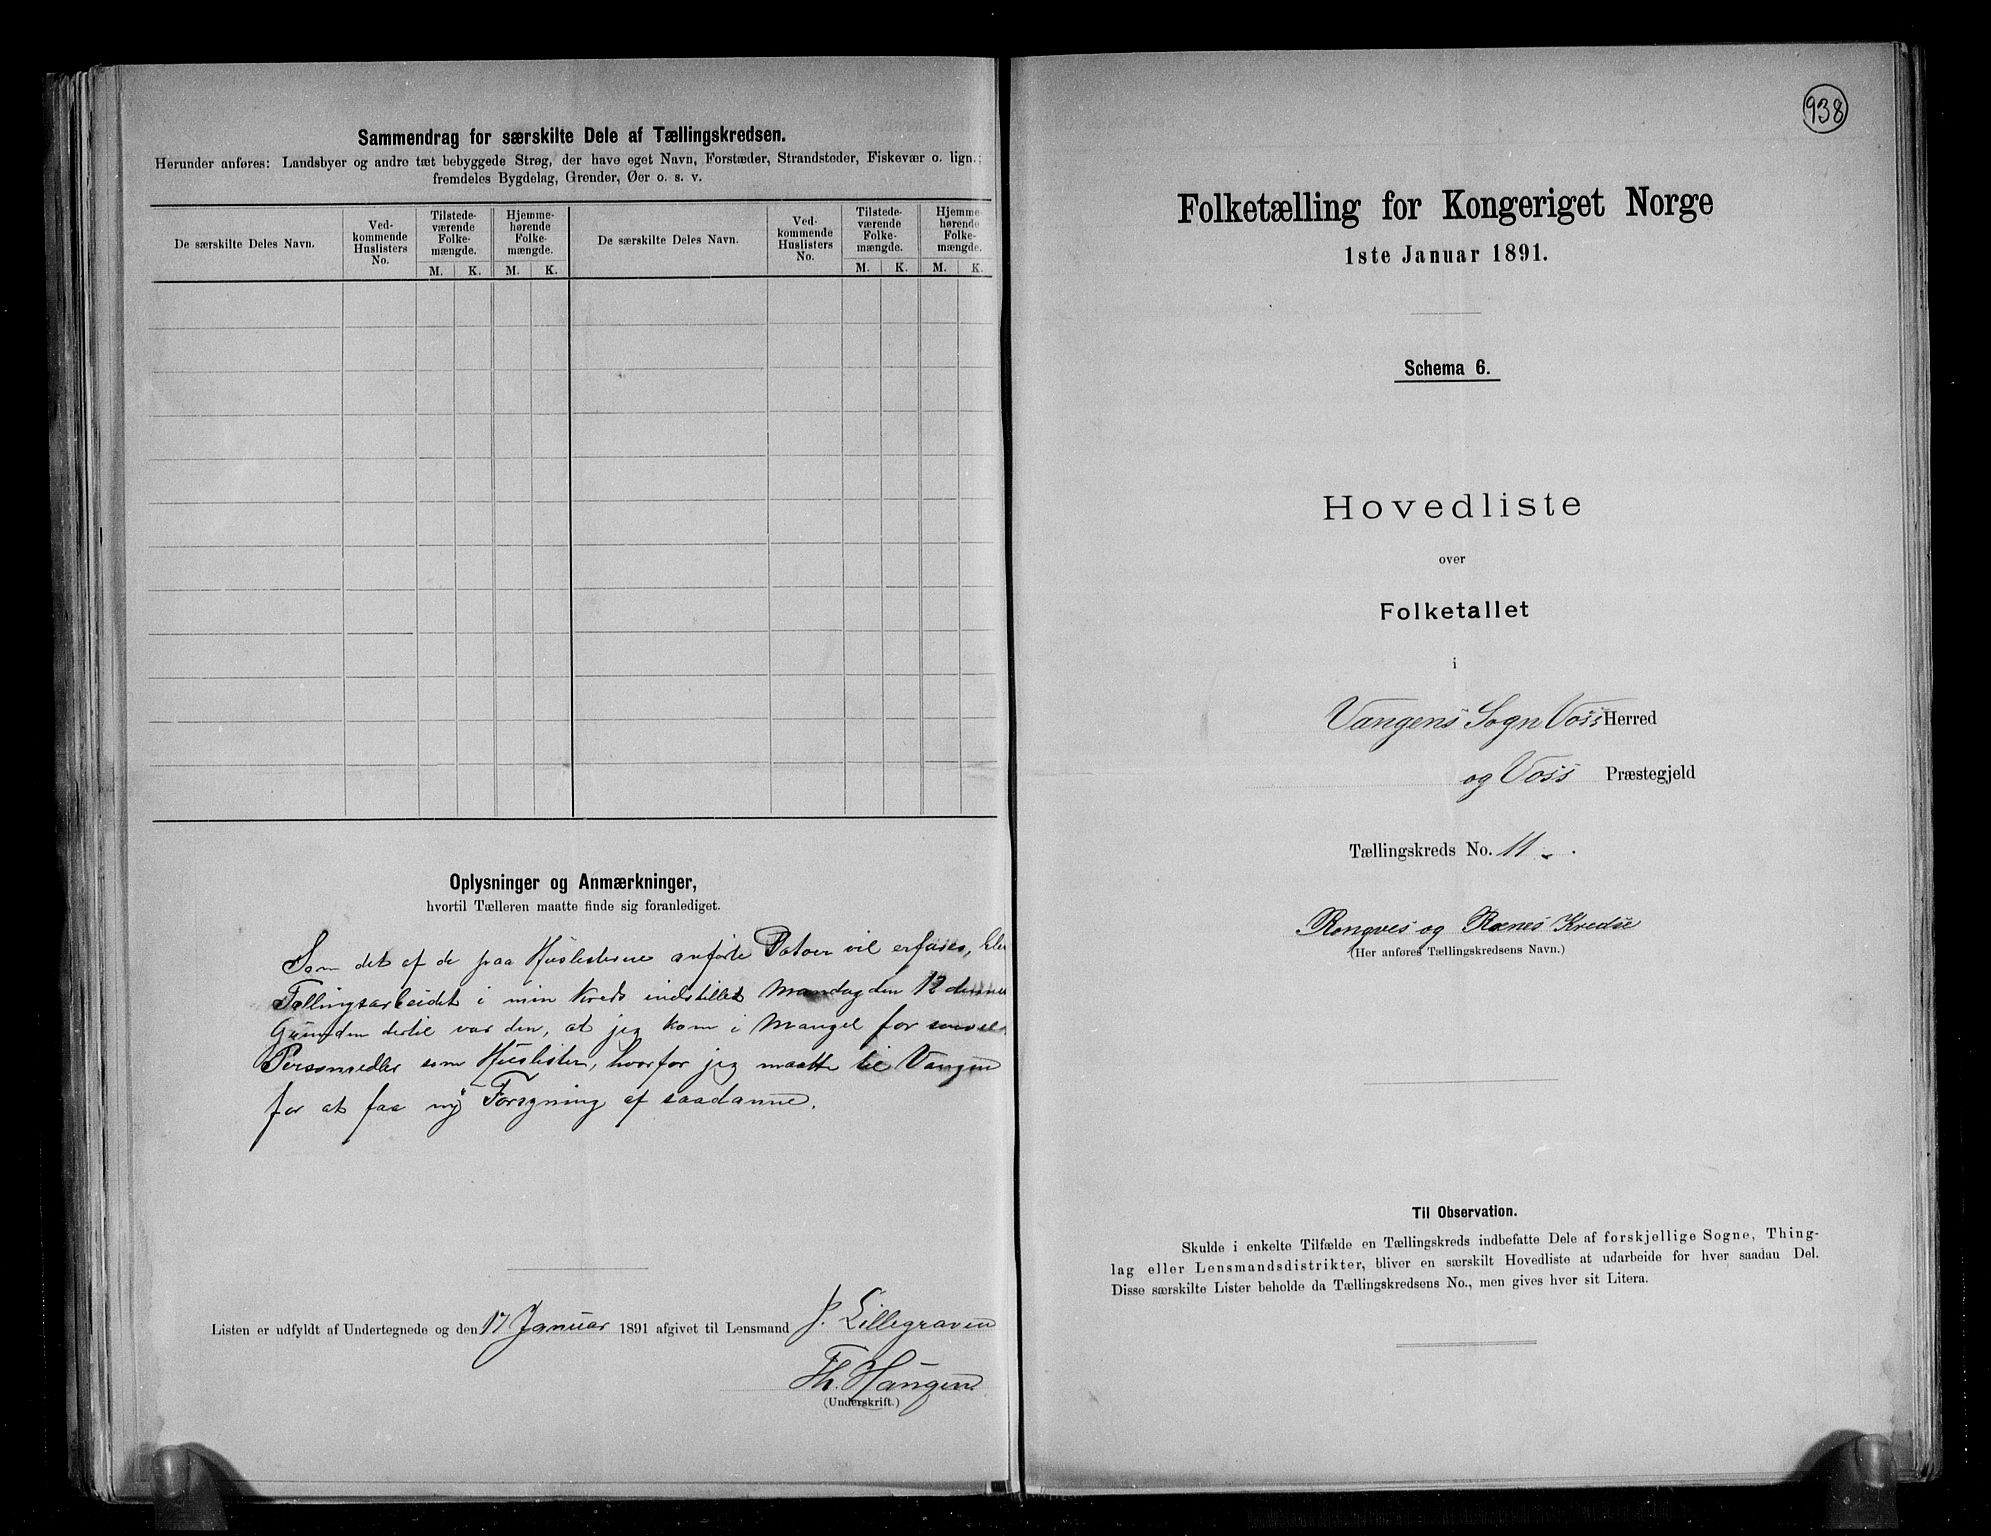 Sammendrag for særskilte Dele af Tællingskredsen.
Herunder anføres: Landsbyer og andre tæt bebyggede Strøg, der have eget Navn, Forstæder, Strandsteder, Fiskevær o. lign.;
fremdeles Bygdelag, Grender, Øer o. s. v.
De særskilte Deles Navn.
Ved-
kommende
Huslisters
No.
Tilstede-
værende
Folke-
mængde.
M. K.
Hjemme-
hørende
Folke-
mængde.
M. K.
De særskilte Deles Navn.
Ved-
kommende
Huslisters
No.
Tilstede-
værende
Folke-
mængde.
M. K.
Hjemme-
hørende
Folke-
mængde.
M. K.
Oplysninger og Anmærkninger,
hvortil Tælleren maatte finde sig foranlediget.
Som det af de paa Huslisterne anførte Datoer vil erfares, blev
Tællingsarbeidet i min Kreds indstillet Mandag den 12 dennes
Grunden dertil var den, at jeg kom i Mangel for saavel
Personsedler som Huslister, hvorfor jeg maatte til Vangen
for at faa ny Forsyning af saadanne.
Listen er udfyldt af Undertegnede og den 17 Januar 1891 afgivet til Lensmand J. Lillegraven
Th. Haugen
(Underskrift.)
938
Folketælling for Kongeriget Norge
1ste Januar 1891.
Schema 6.
Hovedliste
over
Folketallet
i
Vangens Sogn Voss Herred
og Voss Præstegjeld
Tællingskreds No. 11.
Rongves og Rænes Kredse
(Her anføres Tællingskredsens Navn.)
Til Observation.
Skulde i enkelte Tilfælde en Tællingskreds indbefatte Dele af forskjellige Sogne, Thing-
lag eller Lensmandsdistrikter, bliver en særskilt Hovedliste at udarbeide for hver saadan Del.
Disse særskilte Lister beholde da Tællingskredsens No., men gives hver sit Litera.